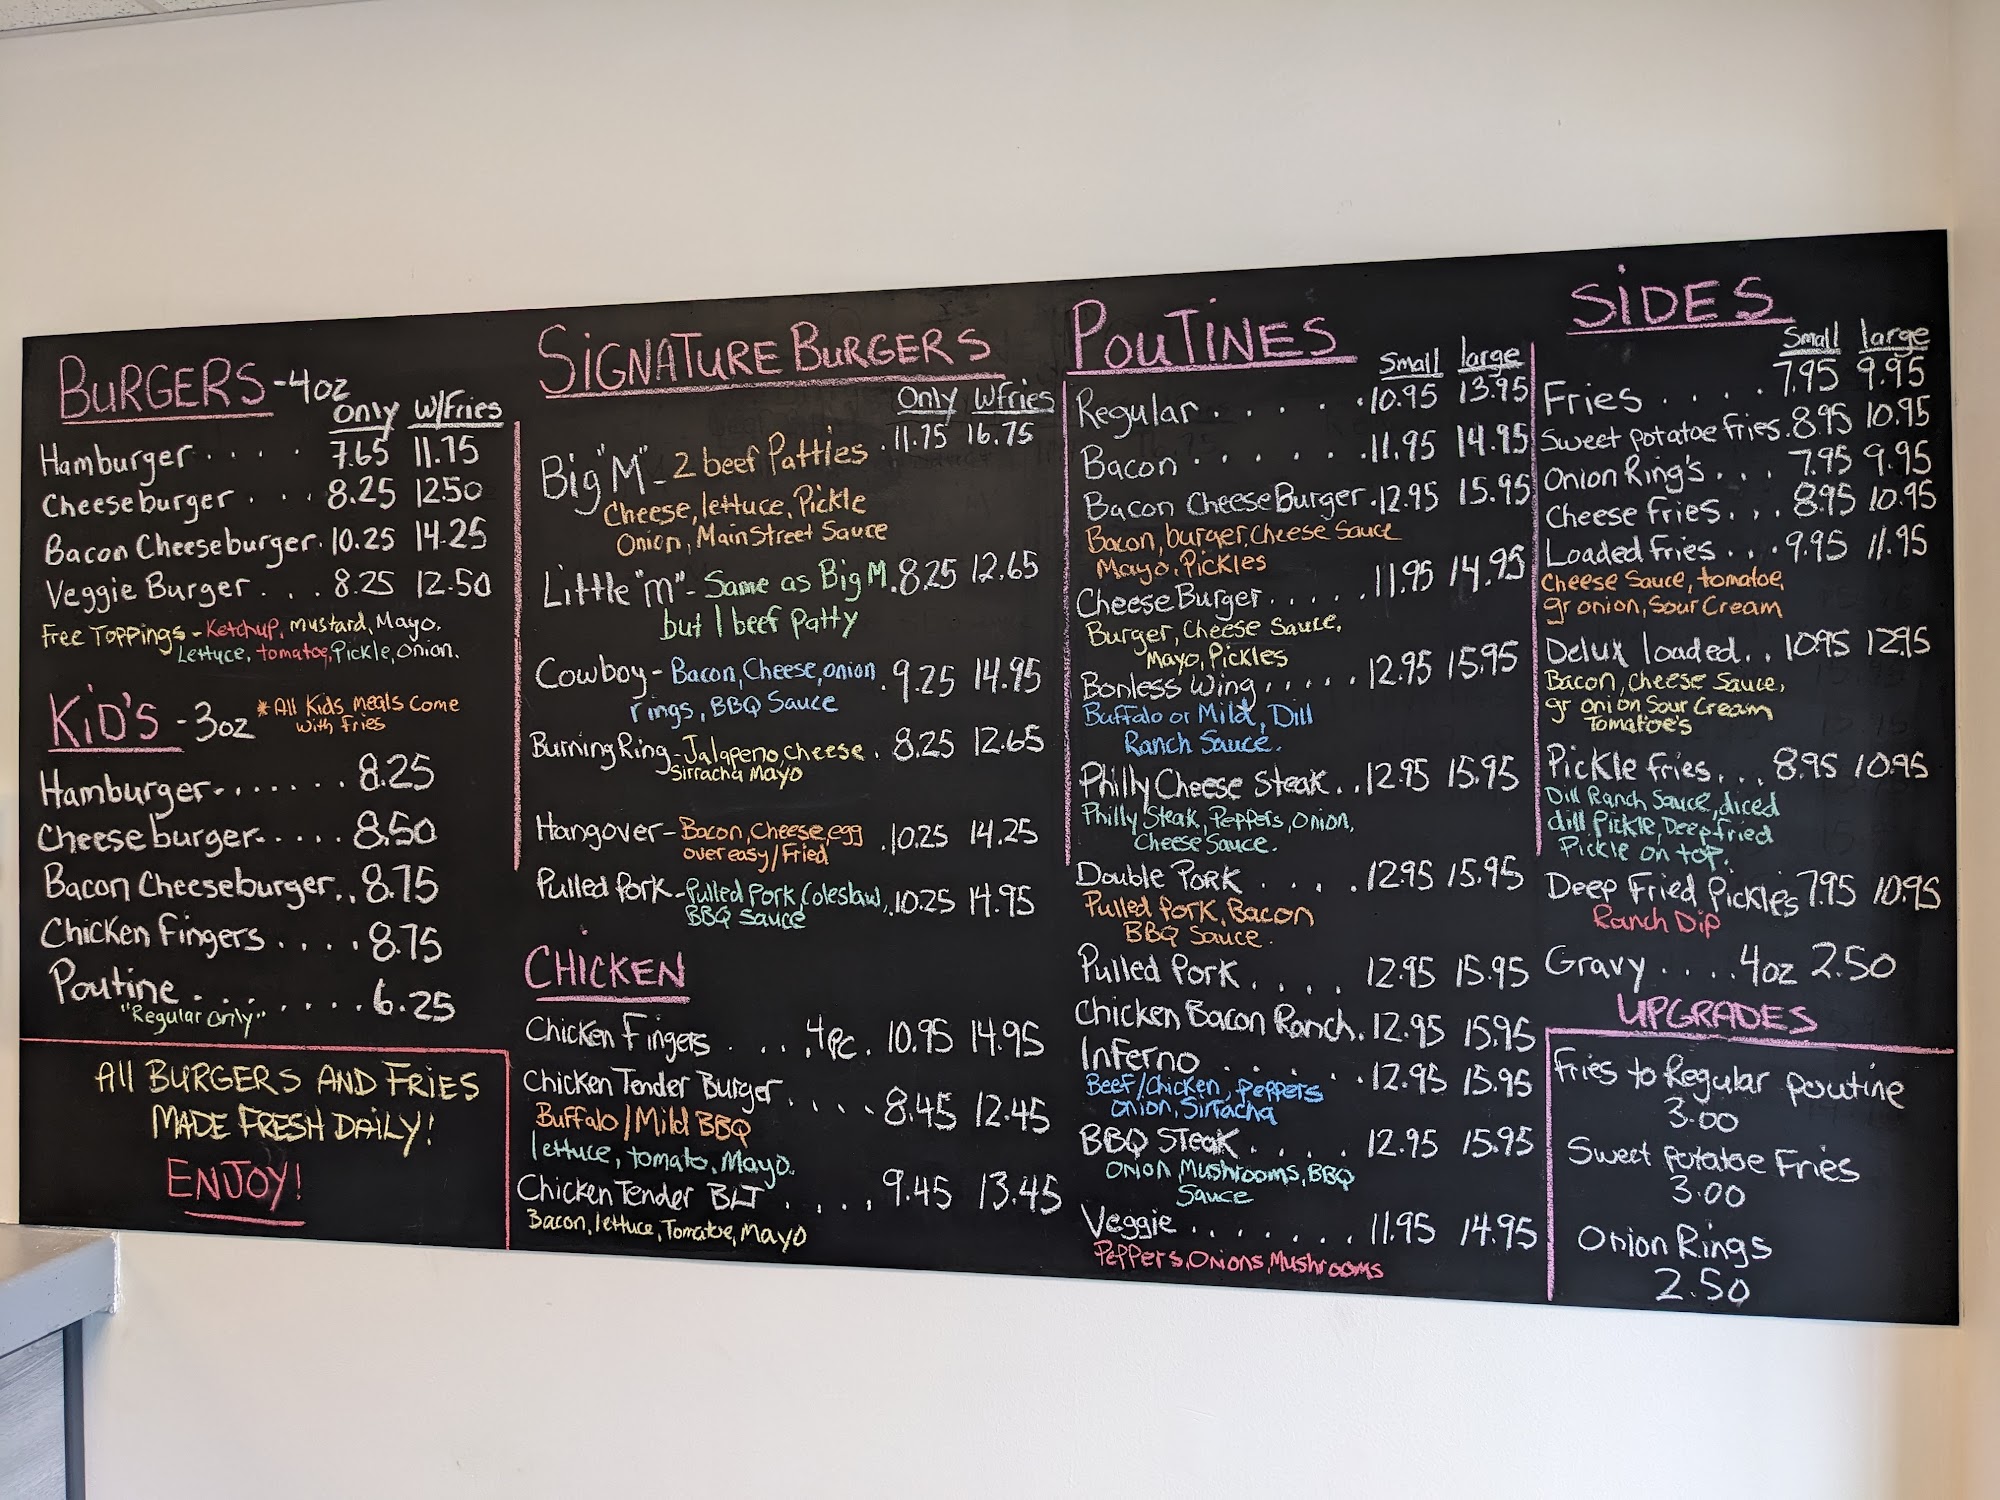 BURGERS - 4oz
Only W/Fries
Hamburger . . . . 7.65 11.75
Cheeseburger . . . 8.25 12.50
Bacon Cheeseburger . 10.25 14.25
Veggie Burger . . . 8.25 12.50
Free Toppings - Ketchup, mustard, Mayo,
Lettuce, tomatoe, Pickle, onion.
KiD'S - 3oz *All Kids meals come
with fries
Hamburger . . . . . . 8.25
Cheeseburger . . . . . 8.50
Bacon Cheeseburger . . 8.75
Chicken Fingers . . . . 8.75
Poutine . . . . . . . . 6.25
"Regular only"
All BURGERS AND FRIES
MADE FRESH DAILY!
ENJOY!
SiGNATURE BURGERS
Only W/fries
Big "M" - 2 beef Patties . 11.75 16.75
Cheese, lettuce, Pickle
Onion, Main Street Sauce
Little "m" - Same as Big M . 8.25 12.65
but 1 beef Patty
Cowboy - Bacon, Cheese, onion . 9.25 14.95
rings, BBQ Sauce
Burning Ring - Jalapeno, cheese . 8.25 12.65
Sirracha Mayo
Hangover - Bacon, Cheese, egg . 10.25 14.25
over easy/Fried
Pulled Pork - Pulled Pork, Coleslaw, . 10.25 14.95
BBQ Sauce
CHICKEN
Chicken Fingers . . . . 4pc . 10.95 14.95
Chicken Tender Burger . . . . 8.45 12.45
Buffalo/Mild BBQ
lettuce, tomato, Mayo.
Chicken Tender BLT . . . . 9.45 13.45
Bacon, lettuce, Tomatoe, Mayo
POUTINES
Small large
Regular . . . . . . 10.95 13.95
Bacon . . . . . . . 11.95 14.95
Bacon Cheese Burger . 12.95 15.95
Bacon, burger, Cheese Sauce
Mayo, Pickles
Cheese Burger . . . . . 11.95 14.95
Burger, Cheese Sauce,
Mayo, Pickles
Bonless Wing . . . . . 12.95 15.95
Buffalo or Mild, Dill
Ranch Sauce.
Philly Cheese Steak . . 12.95 15.95
Philly Steak, Peppers, onion,
Cheese Sauce.
Double Pork . . . . 12.95 15.95
Pulled Pork, Bacon
BBQ Sauce.
Pulled Pork . . . . 12.95 15.95
Chicken Bacon Ranch . 12.95 15.95
Inferno . . . . . . 12.95 15.95
Beef/Chicken, peppers
onion, Sirracha
BBQ Steak . . . . . 12.95 15.95
Onion Mushrooms, BBQ
Sauce
Veggie . . . . . . . 11.95 14.95
Peppers, Onions, Mushrooms
SiDES
Small large
Fries . . . . . 7.95 9.95
Sweet potatoe fries . 8.95 10.95
Onion Ring's . . . 7.95 9.95
Cheese fries . . . 8.95 10.95
Loaded fries . . . 9.95 11.95
Cheese Sauce, tomatoe,
gr onion, Sour Cream
Delux loaded . . 10.95 12.95
Bacon, cheese Sauce,
gr onion Sour Cream
Tomatoe's
Pickle fries . . . 8.95 10.95
Dill Ranch Sauce, diced
dill Pickle, Deep fried
Pickle on top.
Deep Fried Pickles 7.95 10.95
Ranch Dip
Gravy . . . . 4oz 2.50
UPGRADES
Fries to Regular poutine
3.00
Sweet Potatoe Fries
3.00
Onion Rings
2.50